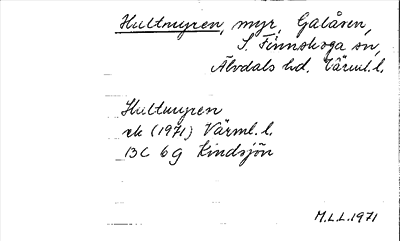 Hultmyren, myr, Galåsen,
S. Finnskoga sn,
Älvdals hd. Värml. l.
Hultmyren
rk (1971) Värml. l.
13C 6g Kindsjön
M.L.L. 1971